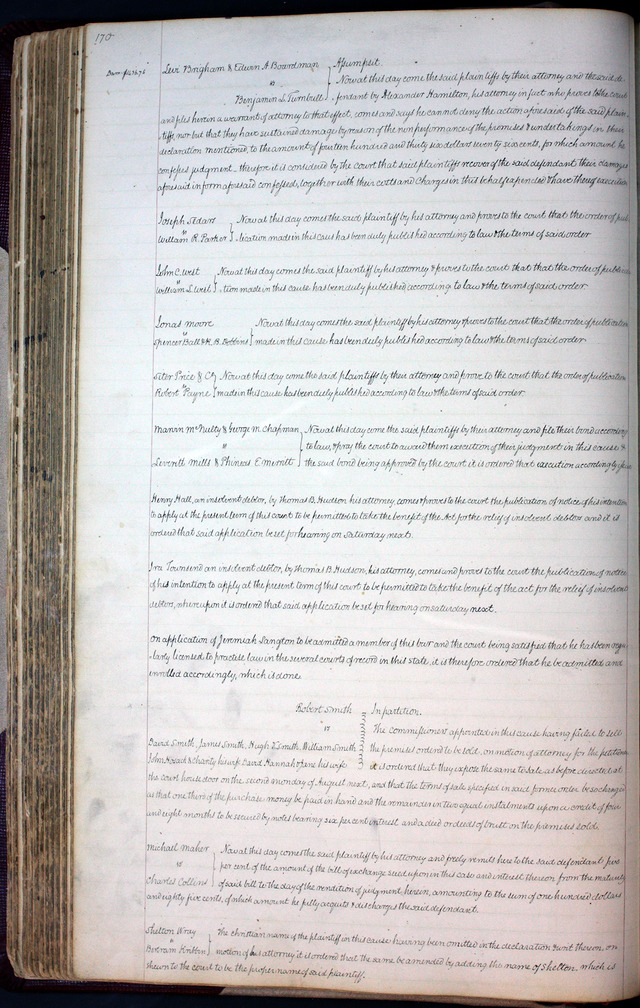 170
Levi Brigham & Edwin A Boardman } Assumpsit.
vs } Now at this day come the said plaintiffs by their attorney and the said de
Benjamin L. Turnbull } fendant by Alexander Hamilton, his attorney in fact who proves to the court
and files herein a warrant of attorney to that effect, comes and says he cannot deny the action aforesaid of the said plain
tiffs, nor but that they have sustained damage by reason of the non performance of the premises & undertakings in their
declaration mentioned, to the amount of fourteen hundred and thirty six dollars seventy six cents, for which amount he
confesses judgment, therefore it is considered by the court that said plaintiffs recover of the said defendant their damages
aforesaid in form aforesaid confessed, together with their costs and Charges in this behalf expended & have thereof execution
Joseph } Now at this day comes the said plaintiff by his attorney and proves to the court that the order of pub
vs
William R. Parker } lication made in this caus has been duly published according to law & the terms of said order
John C. West } Now at this day comes the said plaintiff by his attorney & proves to the court that that the order of publica
vs
William L. West } tion made in this cause has been duly published according to law & the terms of said order
Jonas Moore } Now at this day comes the said plaintiff by his attorney & proves to the court that the order of publication
vs
Spencer Ball & R. B. Dobbins } made in this cause has been duly published according to law & the terms of said order
Siter Price & Co } Now at this day come the said plaintiffs by their attorney and prove to the court that the order of publication
vs
Robert Payne } made in this cause has been duly published according to law & the terms of said order
Mann McNulty & George M Chapman } Now at this day come the said plaintiffs by their attorney and file their bond according
vs } to law, & pray the court to award them execution of their judgment in this cause &
Leventh Mills & Phineas E Merritt } the said bond being approved by the court it is ordered that execution accordingly issue
Henry Hall, an insolvent debtor, by Thomas B. Hudson his attorney, comes & proves to the court the publication of notice of his intention
to apply at the present term of this court to be permitted to take the benefit of the Act for the relief of insolvent debtors and it is
ordered that said application be set for hearing on Saturday next.
Ira Townsend an insolvent debtor, by Thomas B. Hudson, his attorney, comes and proves to the court the publication of notice
of his intention to apply at the present term of this court to be permitted to take the benefit of the act for the relief of insolvent
debtors, whereupon it is ordered that said application be set for hearing on Saturday next.
On application of Jeremiah Langton to be admitted a member of this bar and the court being satisfied that he has been regu
larly licensed to practise law in the several courts of record in this state, it is therefore ordered that he be admitted and
enrolled accordingly, which is done
Robert Smith } In partition.
vs } The Commissioner appointed in this cause having failed to sell
David Smith, James Smith, Hugh L Smith, William Smith } the premises ordered to be sold, on motion of attorney for the petitioner
John Read & Charity his wife David Hannah & Jene his wife } it is ordered that they expose the same to sale as before directed at
the court house door on the second monday of August next, and that the terms of sale specified in said former order be so changed
as that one third of the purchase money be paid in hand and the remainder in two equal instalments upon a credit of four
and eight months to be secured by notes bearing six per cent interest and a deed or deeds of trust on the premises sold
Michael Maher } Now at this day comes the said plaintiff by his attorney and freely remits here to the said defendant five
vs } per cent of the amount of the bill of exchange sued upon in this case and interest thereon from the maturity
Charles Collins } of said bill to the day of the rendition of judgment herein, amounting to the sum of one hundred dollars
and eighty five cents, of which amount he fully acquits & discharges the said defendant.
Shelton Wray } The christian name of the plaintiff in this cause having been omitted in the declaration & writ thereon, on
vs
Bertram } motion of his attorney it is ordered that the same be amended by adding the name of Shelton, which is
shewn to the court to be the proper name of said plaintiff.